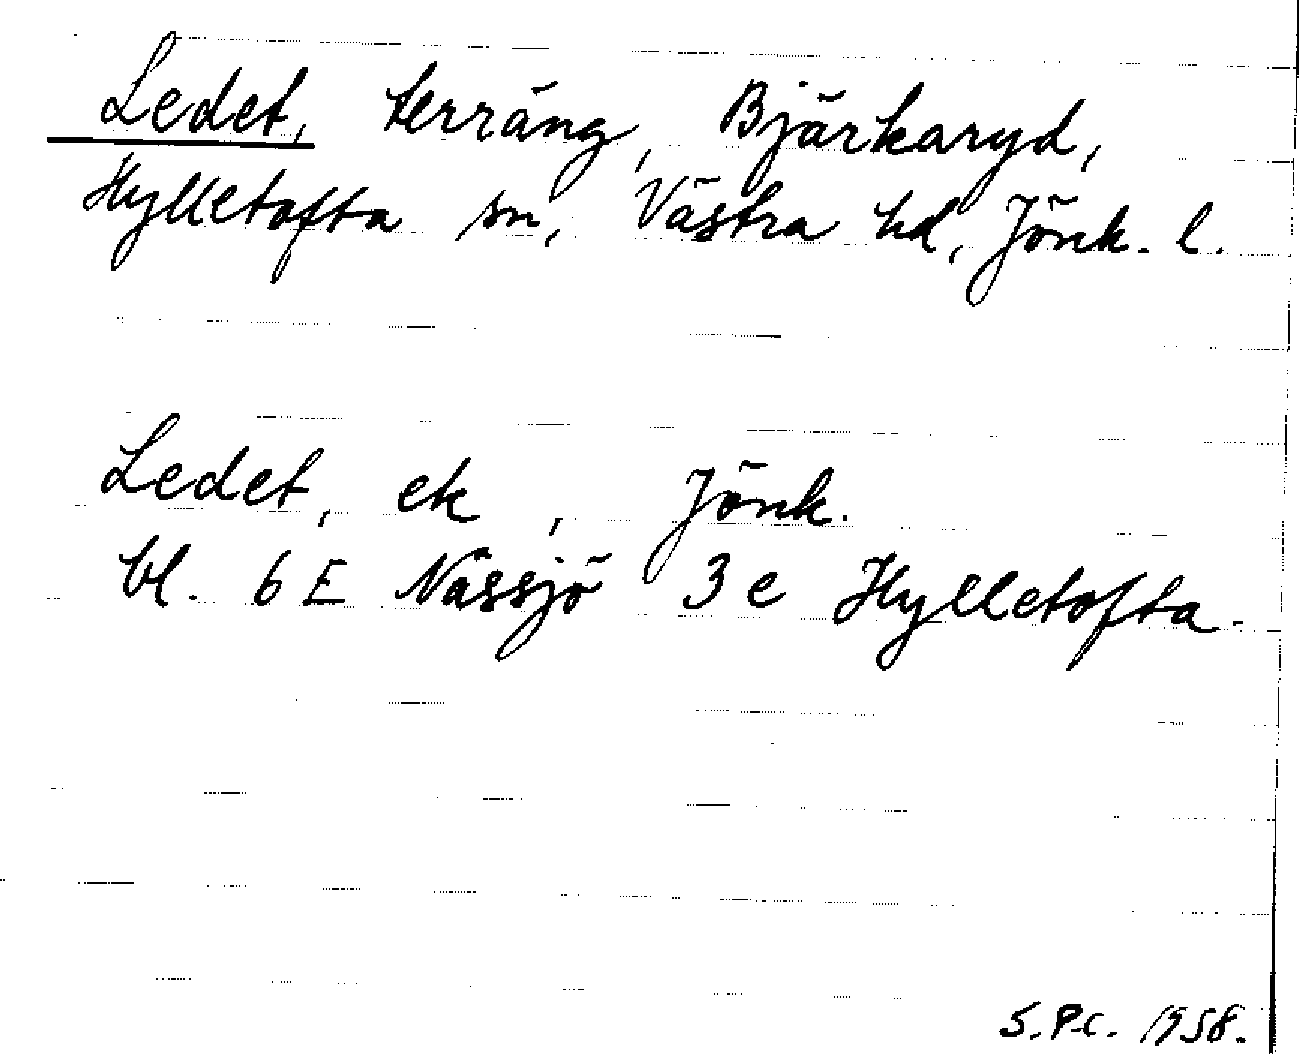 Ledet, terräng, Bjärkaryd,
Hylletofta sn, Västra hd, Jönk. l.
Ledet, ek, Jönk.
bl. 6E Nässjö 3e Hylletofta.
S.P.C. 1958.